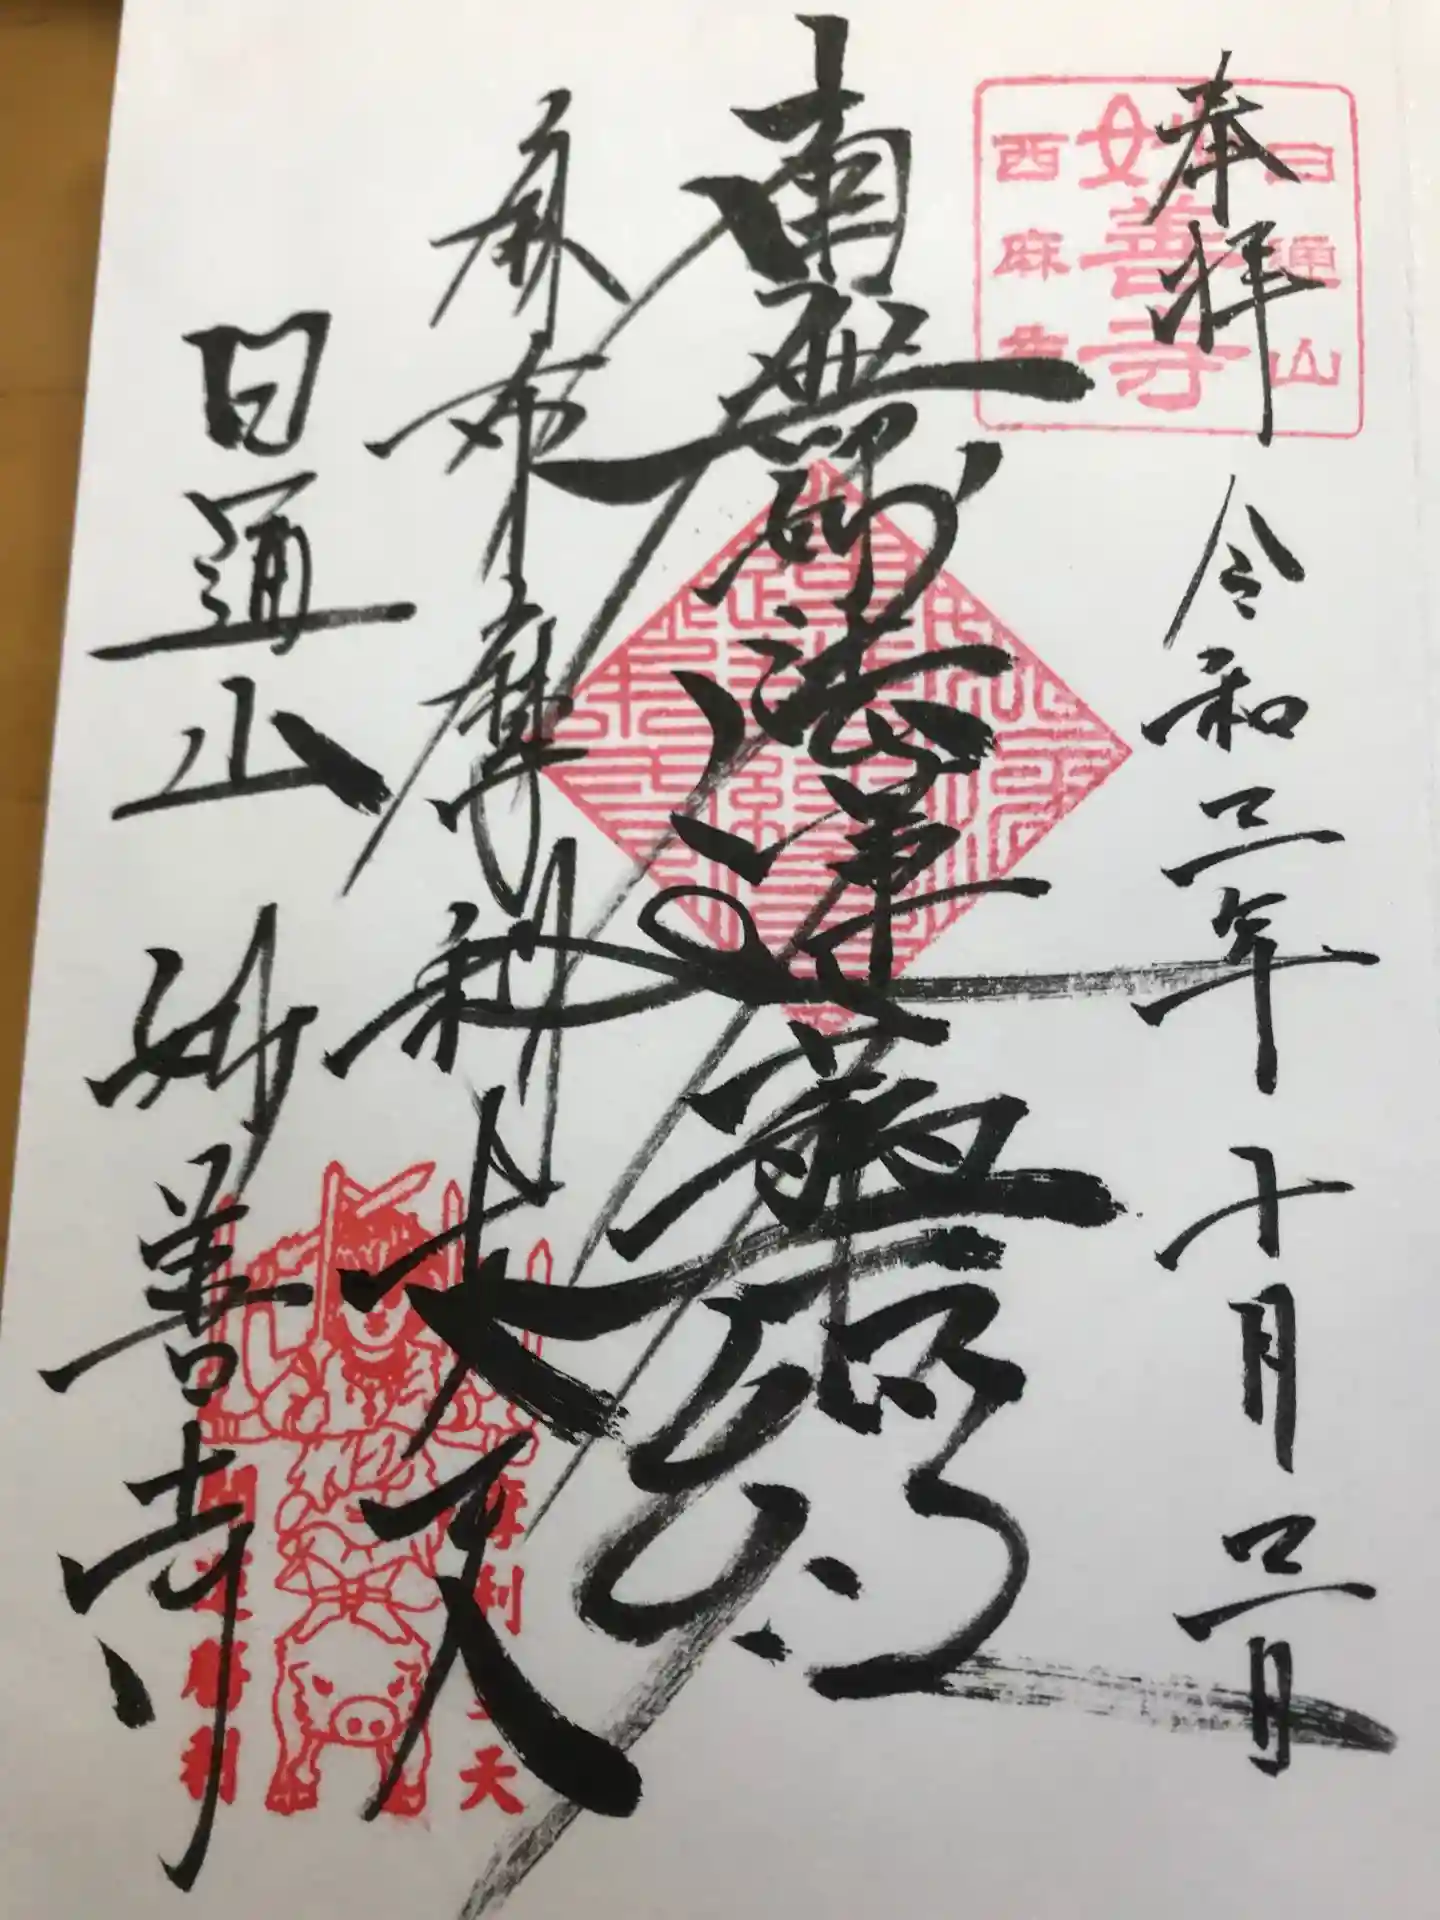 奉拝
令和三年十月三日
日通山
妙善寺
西麻布
南無妙法蓮華経
麻布摩利支天
摩利支天
開運勝利
日通山 妙善寺